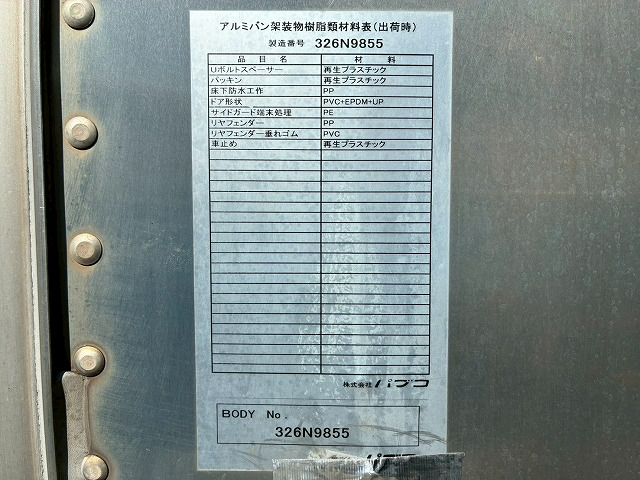 アルミバン架装物樹脂類材料表(出荷時)
製造番号 326N9855
品目名 材料
Uボルトスペーサー 再生プラスチック
パッキン 再生プラスチック
床下防水工作 PP
ドア形状 PVC+EPDM+UP
サイドガード端末処理 PE
リヤフェンダー PP
リヤフェンダー垂れゴム PVC
車止め 再生プラスチック
株式会社 パブコ
BODY No.
326N9855
パブコ